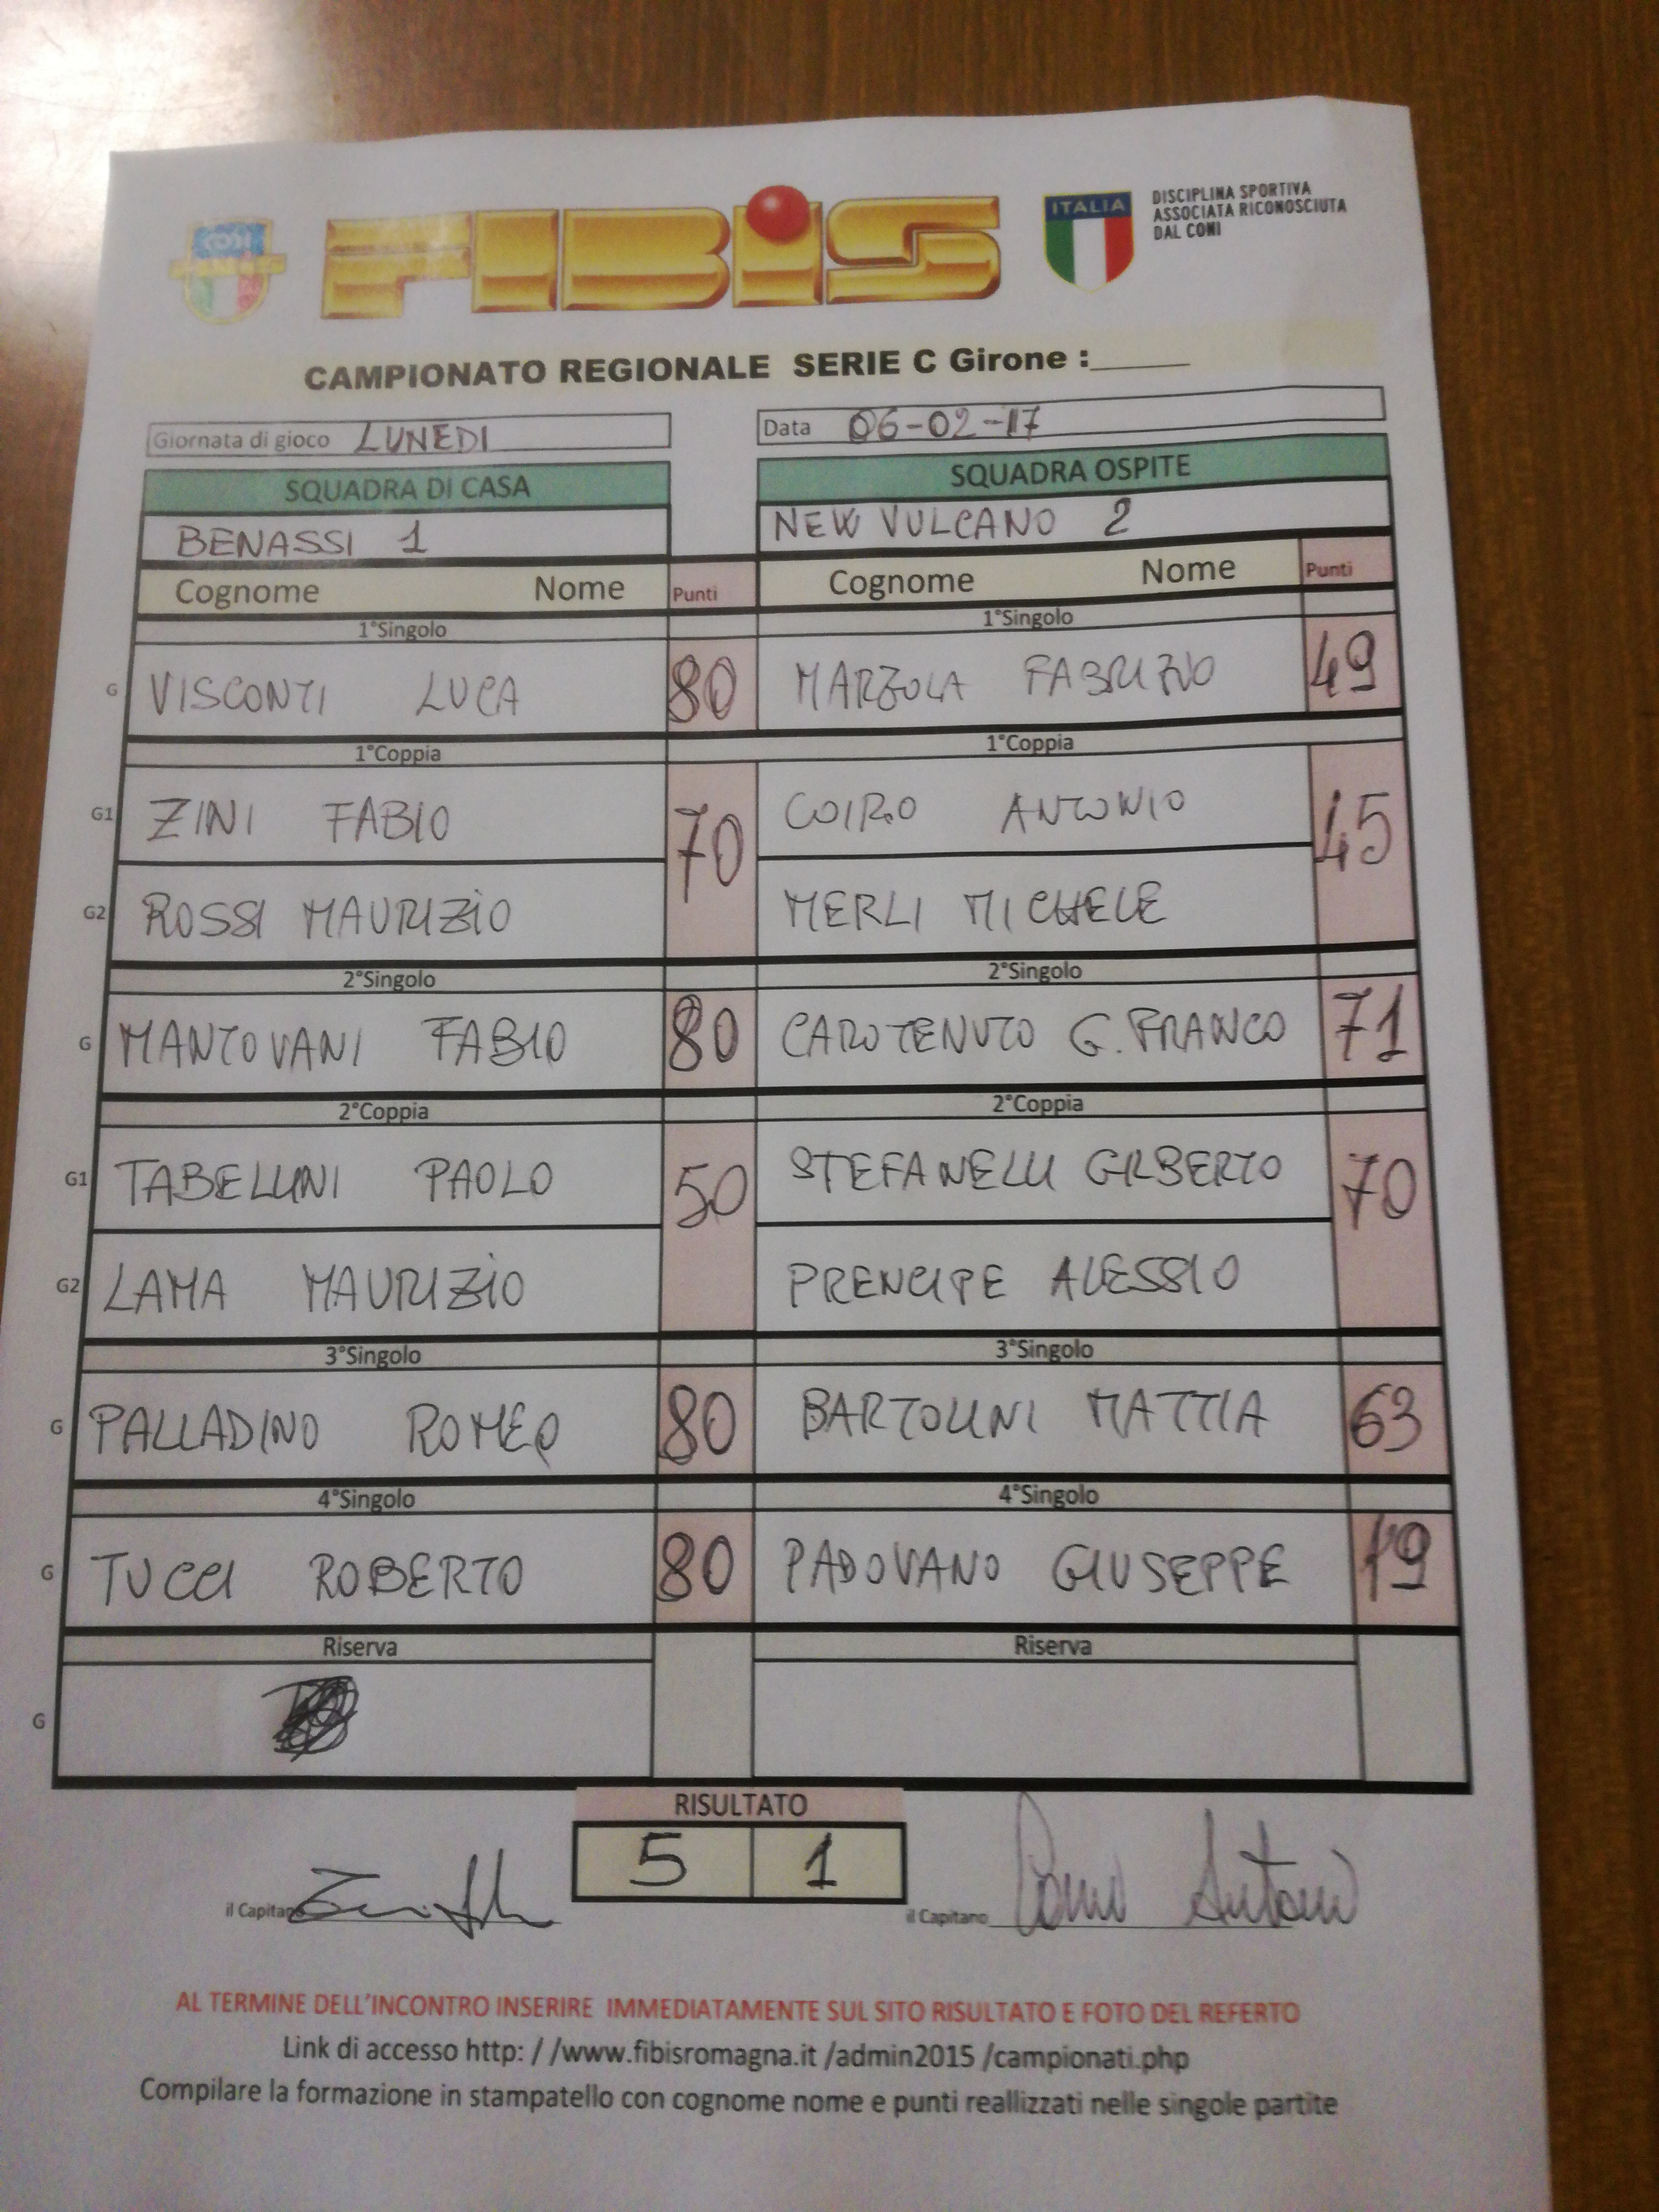 CONI
FIBiS
ITALIA
DISCIPLINA SPORTIVA
ASSOCIATA RICONOSCIUTA
DAL CONI
CAMPIONATO REGIONALE SERIE C Girone :______
Giornata di gioco LUNEDI
Data 06-02-17
SQUADRA DI CASA
SQUADRA OSPITE
BENASSI 1
NEW VULCANO 2
Cognome Nome Punti
Cognome Nome Punti
1°Singolo 1°Singolo
G VISCONTI LUCA 80 MARZOLA FABRIZIO 49
1°Coppia 1°Coppia
G1 ZINI FABIO 70 COIRO ANTONIO 45
G2 ROSSI MAURIZIO MERLI MICHELE
2°Singolo 2°Singolo
G MANTOVANI FABIO 80 CAROTENUTO G. FRANCO 71
2°Coppia 2°Coppia
G1 TABELLINI PAOLO 50 STEFANELLI GILBERTO 70
G2 LAMA MAURIZIO PRENCIPE ALESSIO
3°Singolo 3°Singolo
G PALLADINO ROMEO 80 BARTOLINI MATTIA 63
4°Singolo 4°Singolo
G TUCCI ROBERTO 80 PADOVANO GIUSEPPE 19
Riserva Riserva
G
RISULTATO
5 1
il Capitano
il Capitano
AL TERMINE DELL'INCONTRO INSERIRE IMMEDIATAMENTE SUL SITO RISULTATO E FOTO DEL REFERTO
Link di accesso http: / /www.fibisromagna.it /admin2015 /campionati.php
Compilare la formazione in stampatello con cognome nome e punti reallizzati nelle singole partite